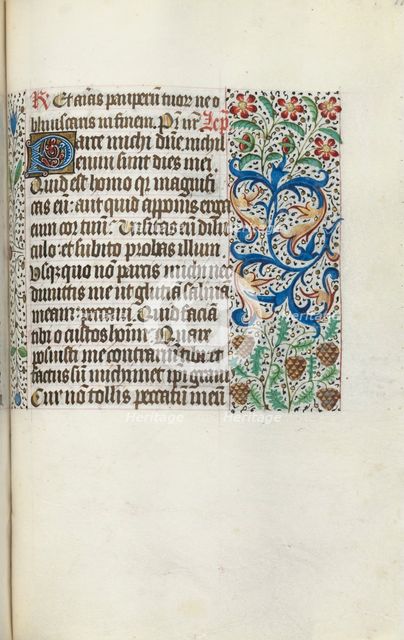 R. Et aīas pauperū tuoꝝ ne o
bliuiscaris in finem. Pr̄ nr̄
Parce michi dn̄e nichil
enim sunt dies mei.
Quid est homo qr magnifi
cas eū: aut quid apponis erga
eum cor tuū. Uisitas eū dilu
culo: et subito probas illum
Usqꝫ quo nō parcis michi nec
dimittis me ut glutiā saliuā
meam: peccaui. Quid faciā
tibi o custos hoīm. Quare
posuisti me contrariū tibi et
factus sū michimet ip̄i grauis
Cur nō tollis peccatū meū
Heritage
Heritage
Heritage
Heritage